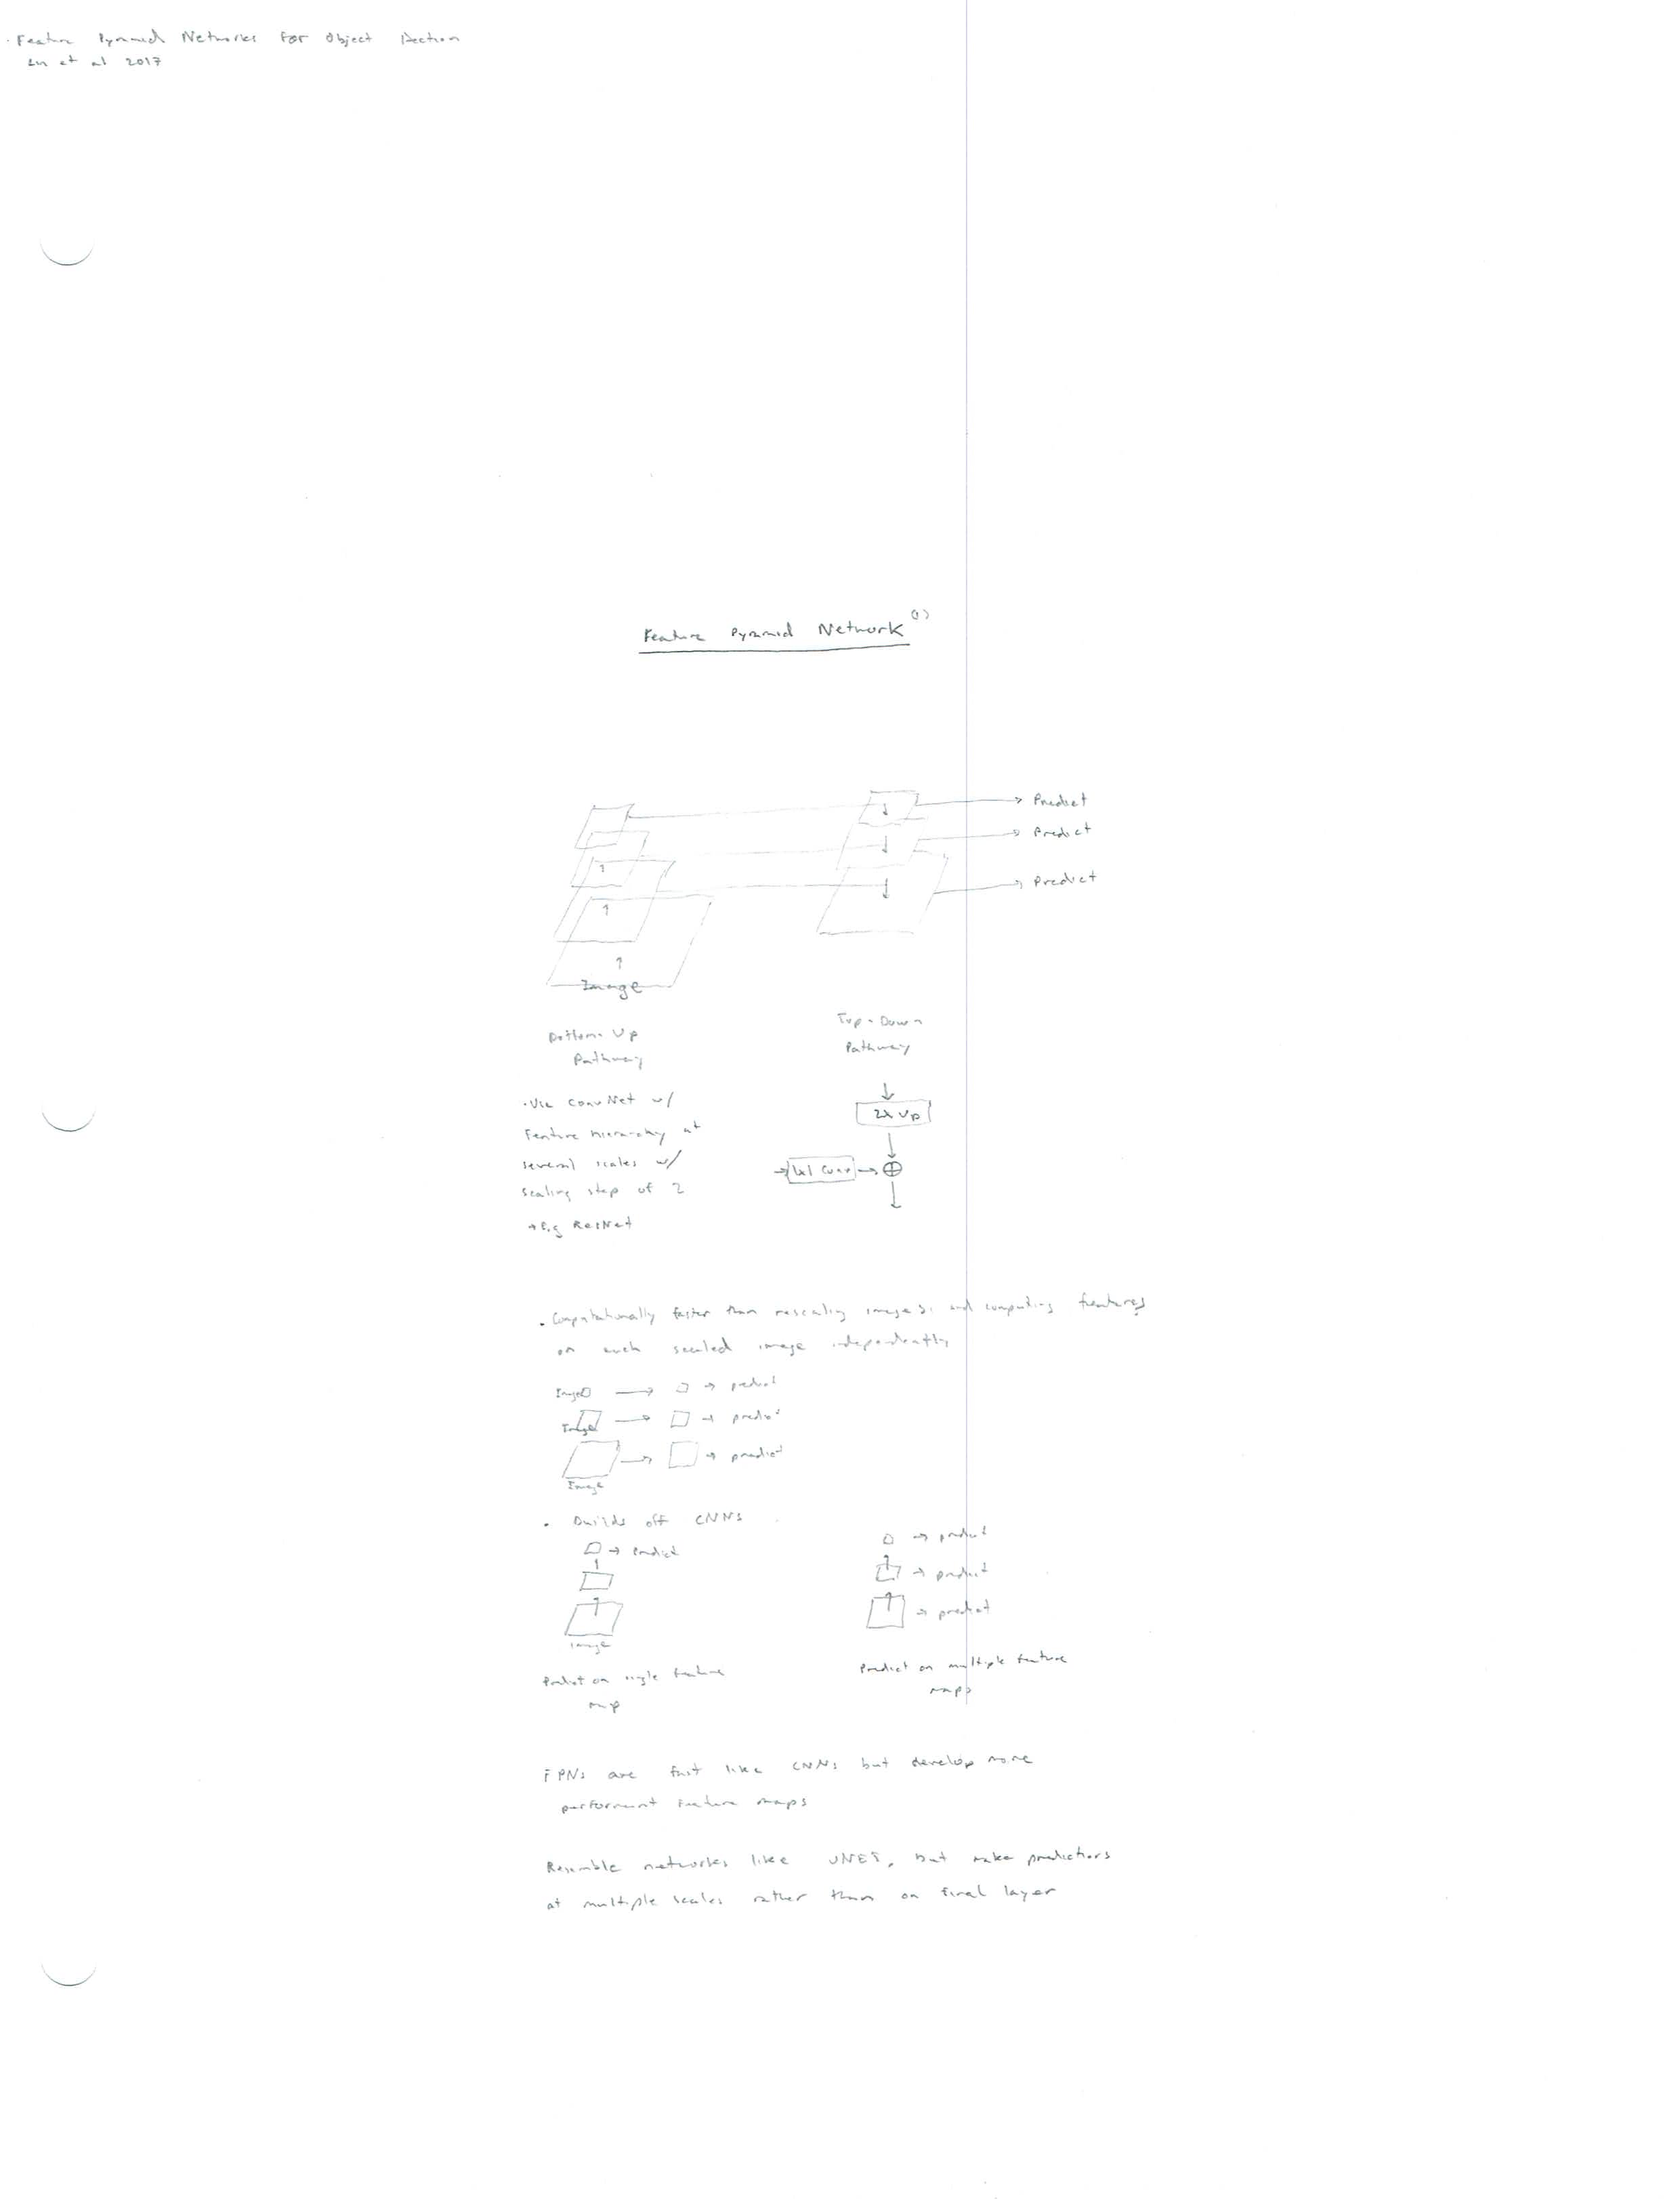 · Feature Pyramid Networks For Object Dection
Lin et al 2017
Feature Pyramid Network (1)
Predict
Predict
Predict
Image
Bottom-Up
Pathway
Top-Down
Pathway
· Via ConvNet w/
Feature hierarchy at
several scales w/
scaling step of 2
→ E.g ResNet
2x Up
1x1 Conv
· Computationally faster than rescaling images and computing features
on each scaled image independently
Image → → predict
Image → → predict
→ → predict
Image
· Builds off CNNs
→ Predict
Image
Predict on single feature
map
→ predict
→ predict
→ predict
Predict on multiple feature
maps
FPNs are fast like CNNs but develop more
performant feature maps
Resemble networks like UNET, but make predictions
at multiple scales rather than on final layer